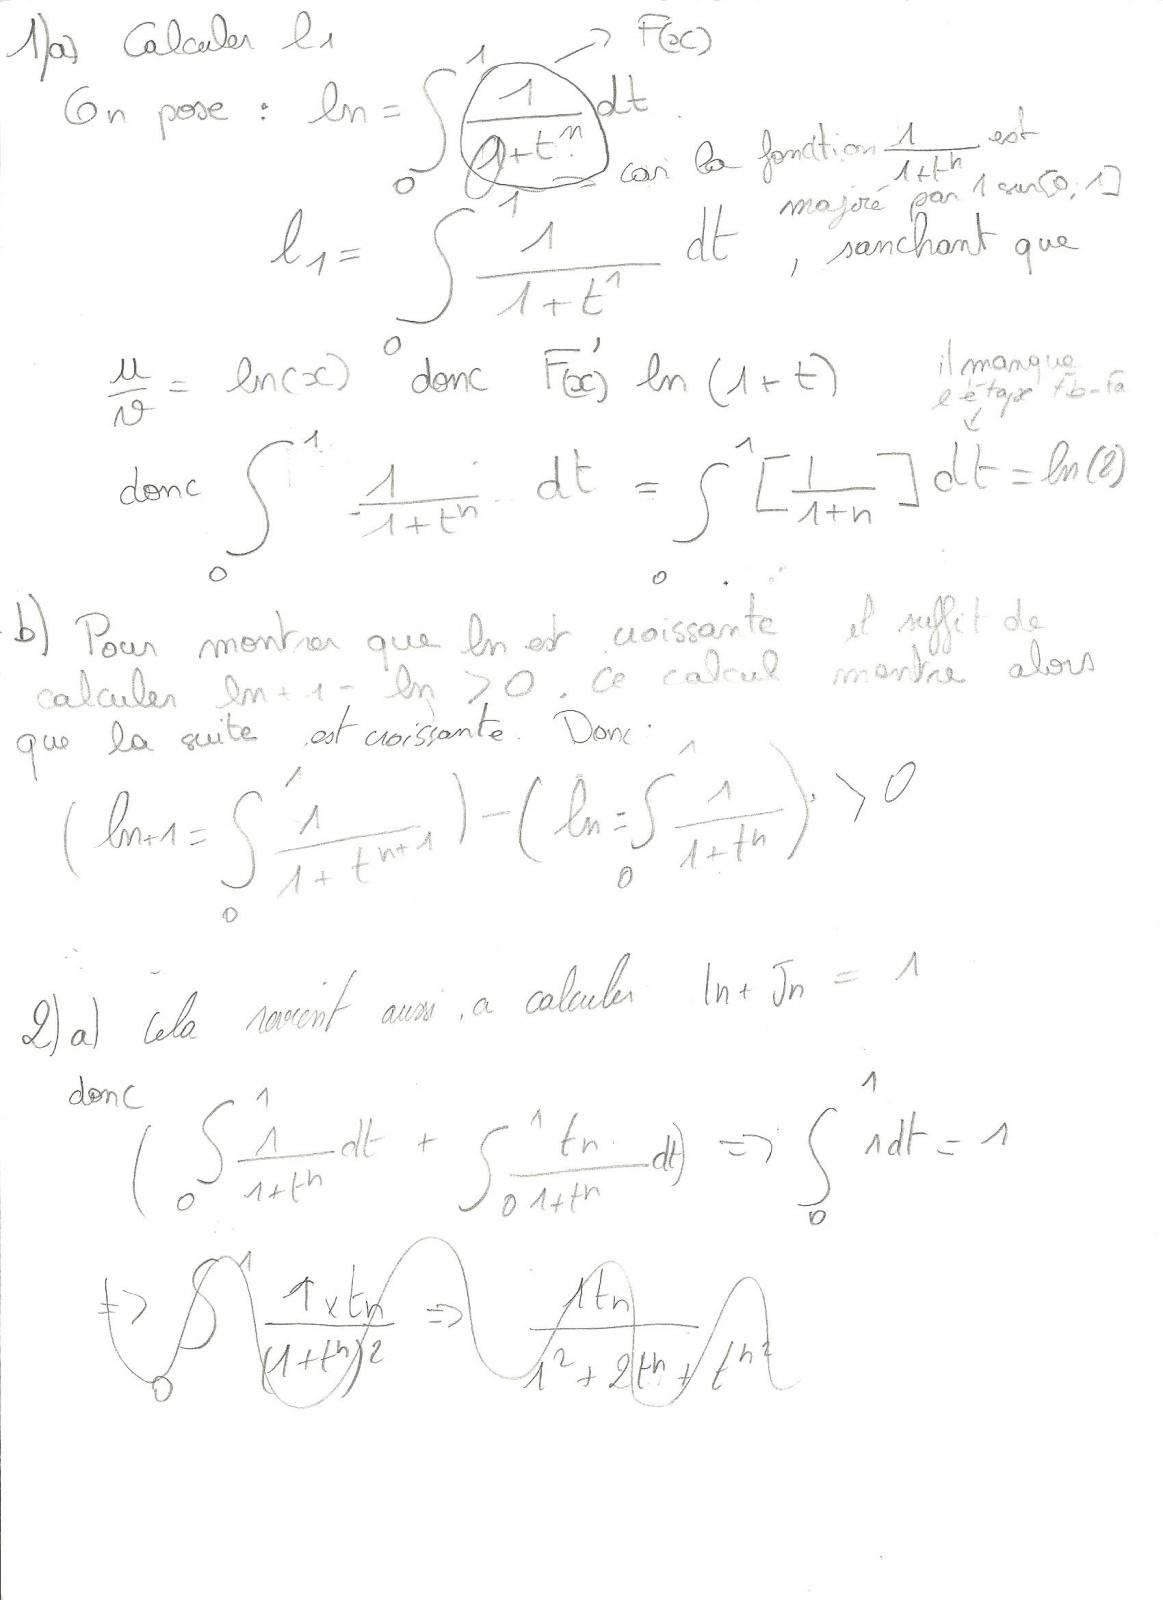 1)a) Calculer l1
→ F(x)
On pose : ln = ∫₀¹ 1/(1+tⁿ) dt
car la fonction 1/(1+tⁿ) est
majoré par 1 sur [0; 1]
l1 = ∫₀¹ 1/(1+t¹) dt , sanchant que
u/v = ln(x) donc F(x)' ln (1+t)
il manque
l'étape Fb-Fa
donc ∫₀¹ 1/(1+tⁿ) dt = ∫₀¹ [1/(1+n)] dt = ln(2)
b) Pour montrer que ln est croissante il suffit de
calculer ln+1 - ln > 0. Ce calcul montre alors
que la suite est croissante. Donc :
(ln+1 = ∫₀¹ 1/(1+tⁿ⁺¹)) - (ln = ∫₀¹ 1/(1+tⁿ)) > 0
2)a) Cela revient aussi a calculer ln + Jn = 1
donc
(∫₀¹ 1/(1+tⁿ) dt + ∫₀¹ tn/(1+tⁿ) dt) => ∫₀¹ 1dt = 1
=> ∫₀¹ 1×tn/(1+tⁿ)² => 1tn/(1²+2tⁿ+tⁿ²)